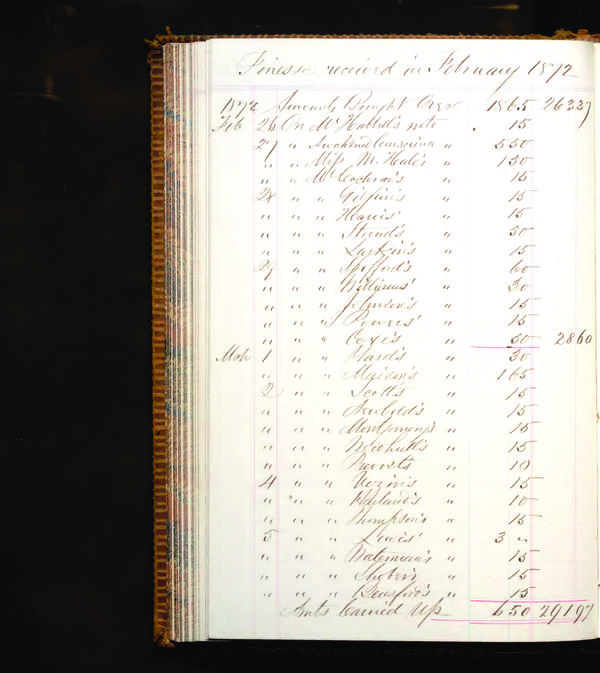 Fines received in February 1872
1872 Amounts Brought Over 1865 26337
Feb 26 On Mr Hubbel's note . 15
27 " Awakend Conscience " 550
" " Miss M. Hale's " 150
" " Mr Cochran's " 15
28 " " Gilpin's " 15
" " " Hearis' " 15
" " " Stroud's " 50
" " " Larkin's " 15
29 " " Spofford's " 60
" " " Williams' " 30
" " " Johnson's " 15
" " " Powers' " 15
" " " Coxe's " 50 2860
Mch 1 " " Ward's " 30
" " " Maison's " 165
2 " " Scott's " 15
" " " Newbold's " 15
" " " Montgomery's " 15
" " " " 15
" " " Prevost's " 10
4 " " Uozin's " 15
" " " Wayland's " 10
" " " Thompson's " 15
5 " " Lewis' " 3 "
" " " Waterman's " 15
" " " " 15
" " " Beresford's " 15
Amts Carried Up 650 29197